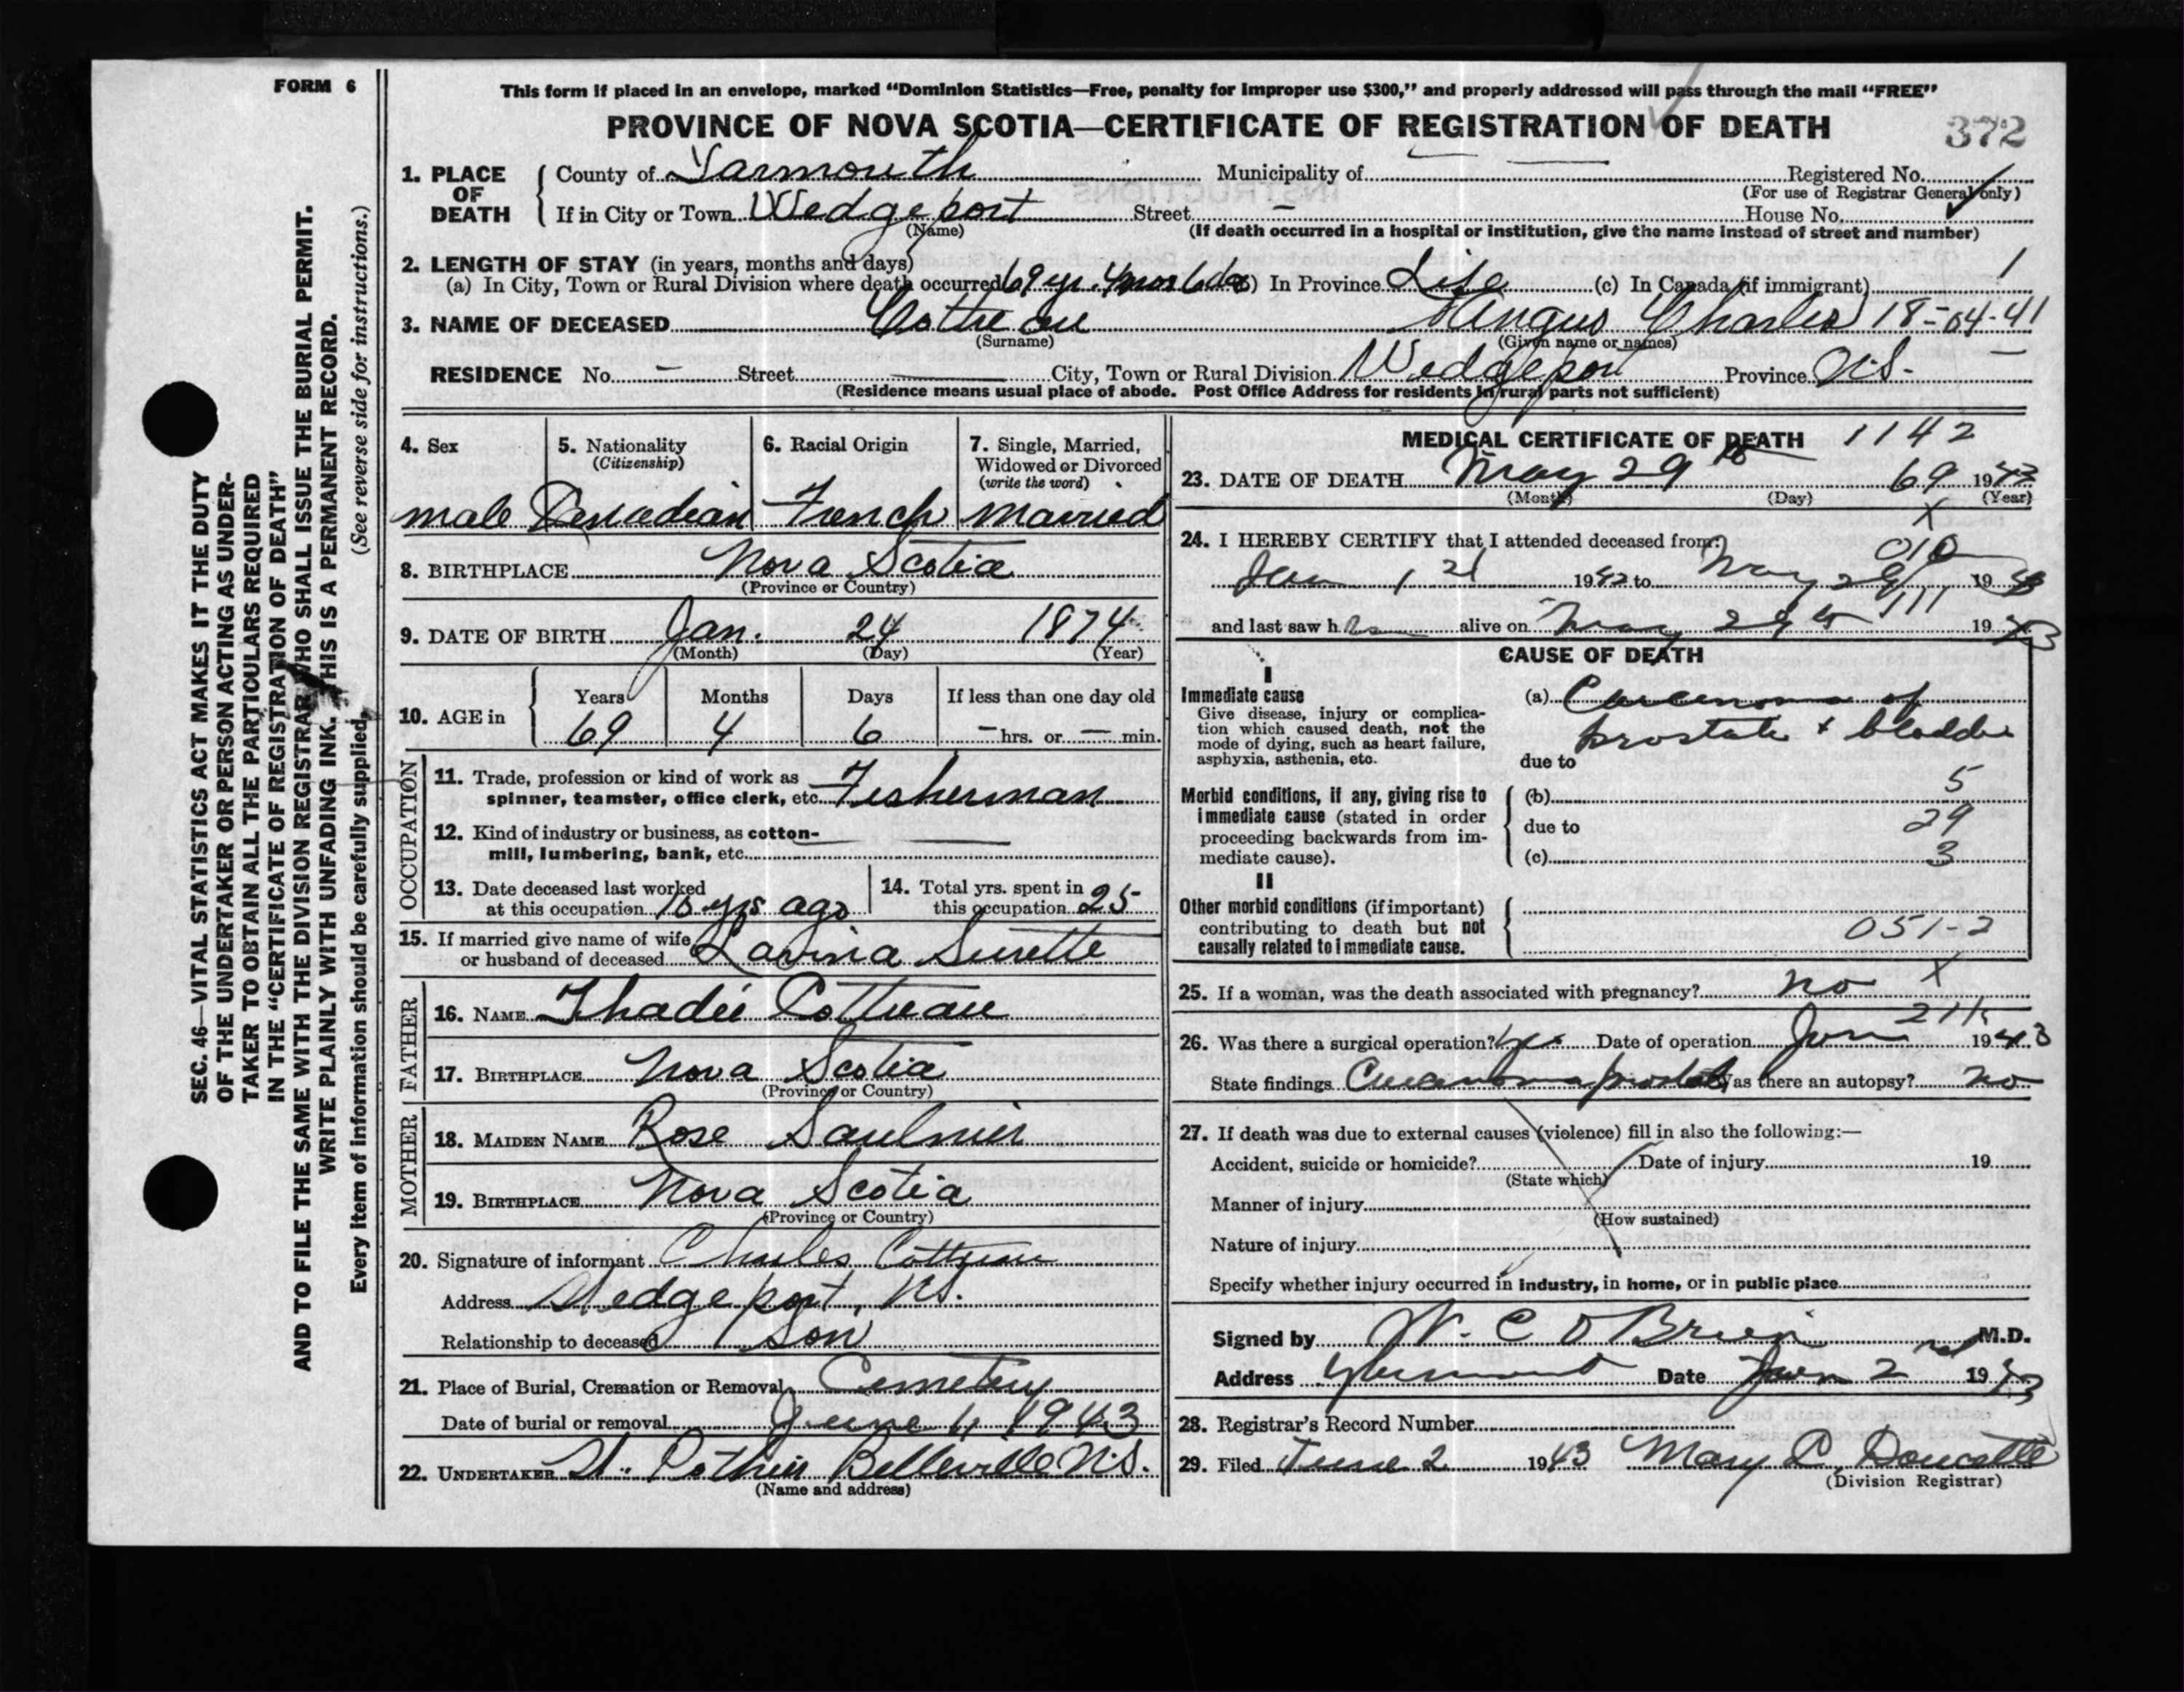 FORM 6
This form if placed in an envelope, marked “Dominion Statistics—Free, penalty for improper use $300,” and properly addressed will pass through the mail “FREE”
PROVINCE OF NOVA SCOTIA—CERTIFICATE OF REGISTRATION OF DEATH
372
1. PLACE OF DEATH
County of Yarmouth Municipality of — Registered No.
(For use of Registrar General only)
If in City or Town Wedgeport Street — House No.
(Name)
(If death occurred in a hospital or institution, give the name instead of street and number)
2. LENGTH OF STAY (in years, months and days)
(a) In City, Town or Rural Division where death occurred 69 yr. 4 mos 6 da (b) In Province Life (c) In Canada (if immigrant) 1
3. NAME OF DECEASED Cottreau Angus Charles 18-04-41
(Surname) (Given name or names)
RESIDENCE No. — Street — City, Town or Rural Division Wedgeport Province N.S. —
(Residence means usual place of abode. Post Office Address for residents in rural parts not sufficient)
4. Sex
male
5. Nationality
(Citizenship)
Canadian
6. Racial Origin
French
7. Single, Married,
Widowed or Divorced
(write the word)
married
8. BIRTHPLACE Nova Scotia
(Province or Country)
9. DATE OF BIRTH Jan. 24 1874
(Month) (Day) (Year)
10. AGE in
Years Months Days If less than one day old
69 4 6 — hrs. or — min.
OCCUPATION
11. Trade, profession or kind of work as
spinner, teamster, office clerk, etc. Fisherman
12. Kind of industry or business, as cotton-
mill, lumbering, bank, etc. —
13. Date deceased last worked
at this occupation 10 yrs ago
14. Total yrs. spent in
this occupation 25
15. If married give name of wife
or husband of deceased Lavinia Surette
FATHER
16. NAME Thadée Cottreau
17. BIRTHPLACE Nova Scotia
(Province or Country)
MOTHER
18. MAIDEN NAME Rose Saulnier
19. BIRTHPLACE Nova Scotia
(Province or Country)
20. Signature of informant Charles Cottreau
Address Wedgeport, N.S.
Relationship to deceased Son
21. Place of Burial, Cremation or Removal Cemetery
Date of burial or removal June 1, 1943
22. UNDERTAKER Pothier Belleville N.S.
(Name and address)
MEDICAL CERTIFICATE OF DEATH 1142
23. DATE OF DEATH May 29th 69 1943
(Month) (Day) (Year)
X
24. I HEREBY CERTIFY that I attended deceased from:
010
Jan 1 21 1942 to May 29 1943
111
and last saw h alive on May 29th 1943
CAUSE OF DEATH
I
Immediate cause
Give disease, injury or complica-
tion which caused death, not the
mode of dying, such as heart failure,
asphyxia, asthenia, etc.
(a) Carcinoma of
prostate + bladder
due to
Morbid conditions, if any, giving rise to
immediate cause (stated in order
proceeding backwards from im-
mediate cause).
(b) 5
due to 29
(c) 3
II
Other morbid conditions (if important)
contributing to death but not
causally related to immediate cause.
051-2
25. If a woman, was the death associated with pregnancy? no X
211
26. Was there a surgical operation? yes Date of operation Jan 1943
State findings Carcinoma prostate Was there an autopsy? no
27. If death was due to external causes (violence) fill in also the following:—
Accident, suicide or homicide? Date of injury 19
(State which)
Manner of injury
(How sustained)
Nature of injury
Specify whether injury occurred in industry, in home, or in public place
Signed by W. C. O'Brien M.D.
Address Yarmouth Date June 2nd 1943
28. Registrar's Record Number
29. Filed June 2 1943 Mary Doucette
(Division Registrar)
SEC. 46—VITAL STATISTICS ACT MAKES IT THE DUTY
OF THE UNDERTAKER OR PERSON ACTING AS UNDER-
TAKER TO OBTAIN ALL THE PARTICULARS REQUIRED
IN THE “CERTIFICATE OF REGISTRATION OF DEATH”
AND TO FILE THE SAME WITH THE DIVISION REGISTRAR WHO SHALL ISSUE THE BURIAL PERMIT.
WRITE PLAINLY WITH UNFADING INK. THIS IS A PERMANENT RECORD.
Every item of information should be carefully supplied. (See reverse side for instructions.)